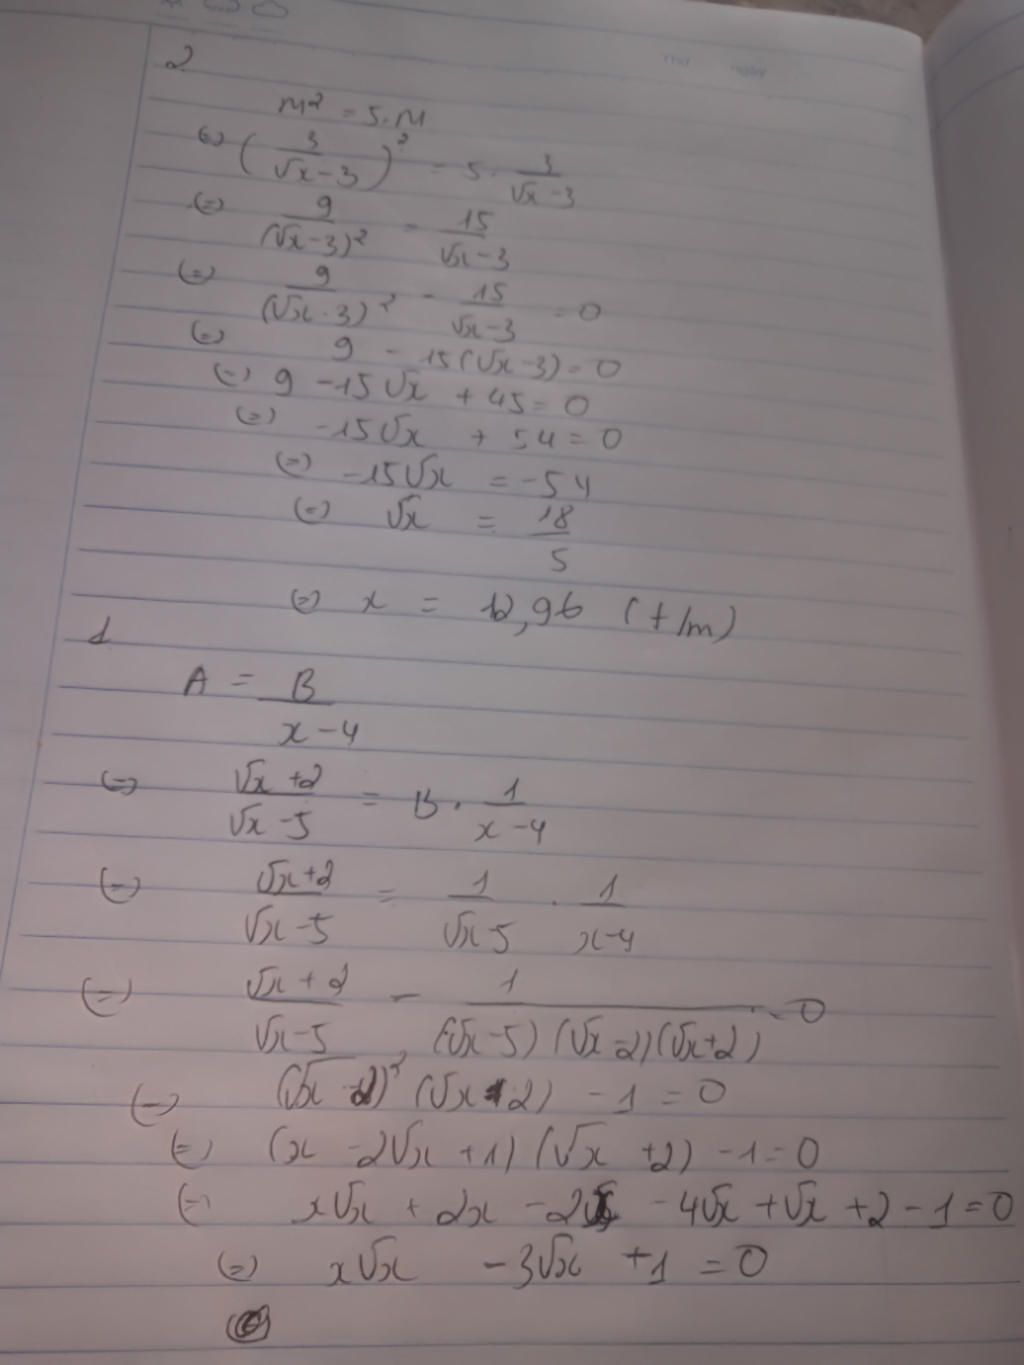 2
M² = 5.M
(=) (3/(√x-3))² = 5. 3/(√x-3)
(=) 9/(√x-3)² = 15/(√x-3)
(=) 9/(√x-3)² - 15/(√x-3) = 0
(=) 9 - 15(√x-3) = 0
(=) 9 - 15√x + 45 = 0
(=) -15√x + 54 = 0
(=) -15√x = -54
(=) √x = 18/5
(=) x = 12,96 (t/m)
1
A = B/(x-4)
(=) (√x+2)/(√x-5) = B . 1/(x-4)
(=) (√x+2)/(√x-5) = 1/(√x-5) . 1/(x-4)
(=) (√x+2)/(√x-5) - 1/((√x-5)(√x-2)(√x+2)) = 0
(=) (√x-2)² (√x+2) - 1 = 0
(=) (x - 2√x + 1) (√x + 2) - 1 = 0
(=) x√x + 2x - 2x - 4√x + √x + 2 - 1 = 0
(=) x√x - 3√x + 1 = 0